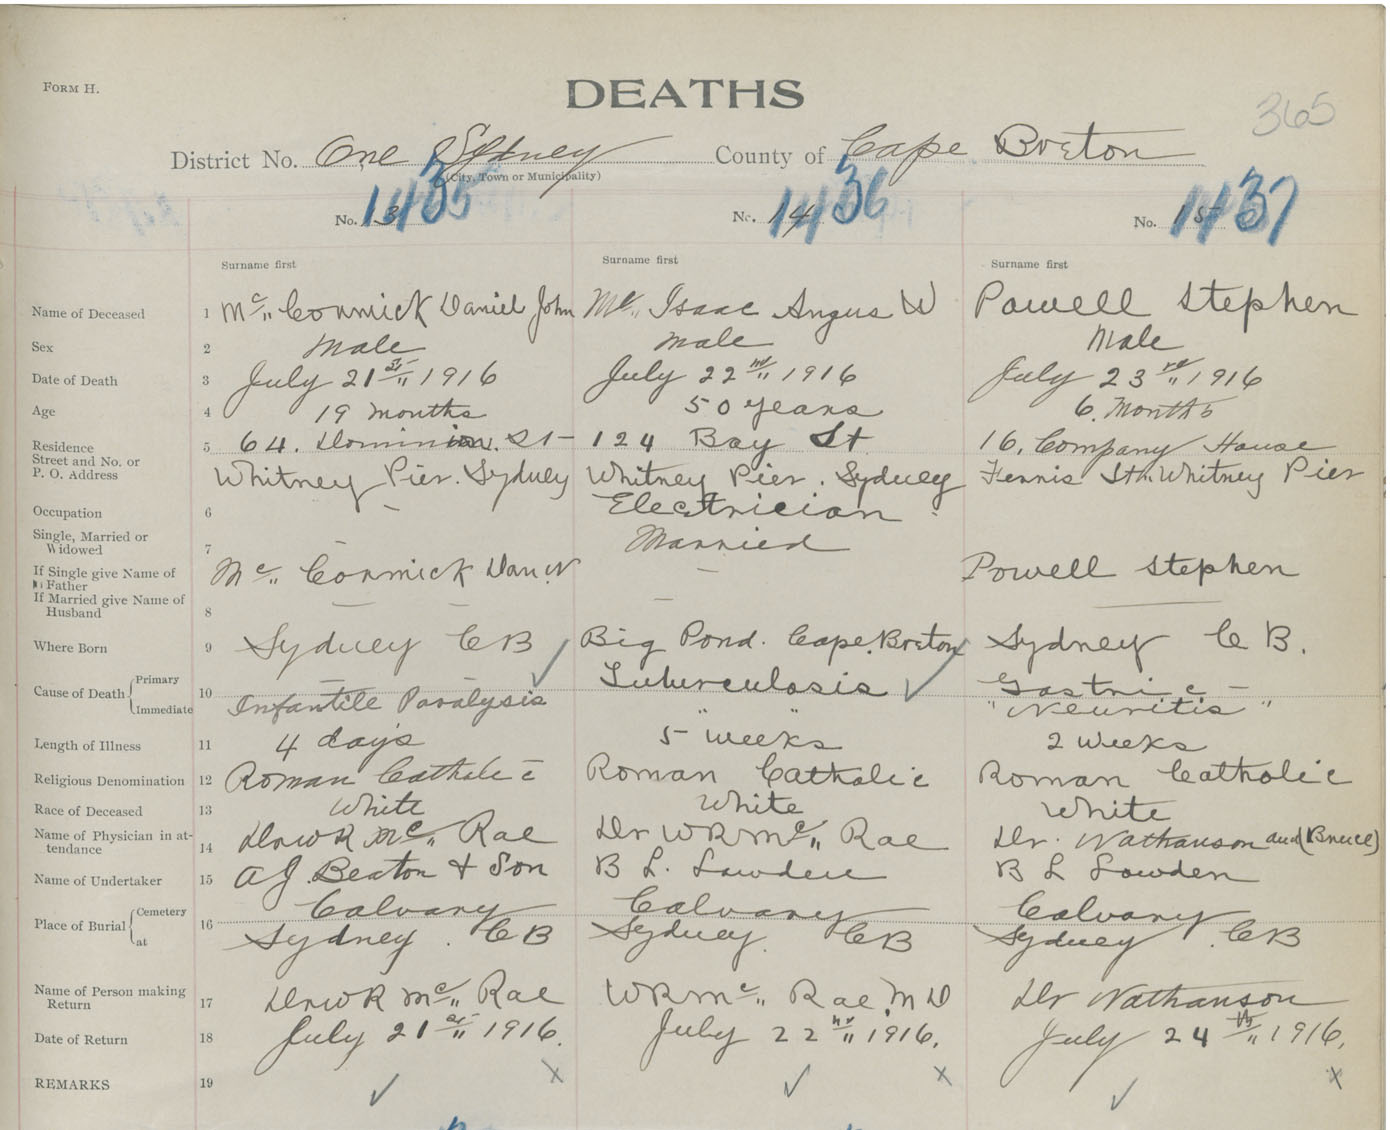 FORM H.
DEATHS
365
District No. One Sydney County of Cape Breton
(City, Town or Municipality)
1435 1436 1437
No. 13 No. 14 No. 15
Surname first Surname first Surname first
Name of Deceased 1 Mc Cormick Daniel John Mc Isaac Angus W Powell Stephen
Sex 2 Male Male Male
Date of Death 3 July 21st 1916 July 22nd 1916 July 23rd 1916
Age 4 19 months 50 years 6. Months
Residence 5 64. Dominion. St 124 Bay St 16. Company House
Street and No. or
P. O. Address Whitney Pier. Sydney Whitney Pier. Sydney Ferris Sth. Whitney Pier
Occupation 6 - Electrician
Single, Married or
Widowed 7 - Married
If Single give Name of
Father Mc Cormick Dan N - Powell Stephen
If Married give Name of
Husband 8 - - -
Where Born 9 Sydney C B Big Pond. Cape Breton Sydney C B.
Cause of Death Primary 10 Tuberculosis Gastric -
Immediate Infantile Paralysis " " "Neuritis"
Length of Illness 11 4 days 5 weeks 2 weeks
Religious Denomination 12 Roman Catholic Roman Catholic Roman Catholic
Race of Deceased 13 White White White
Name of Physician in at-
tendance 14 Dr W R Mc Rae Dr W R Mc Rae Dr. Nathanson and (Bruce)
Name of Undertaker 15 A J. Beaton & Son B L. Lowden B L Lowden
Place of Burial Cemetery 16 Calvary Calvary Calvary
at Sydney. C B Sydney. C B Sydney. C B
Name of Person making
Return 17 Dr W R Mc Rae W R Mc Rae M D Dr Nathanson
Date of Return 18 July 21st 1916. July 22nd 1916. July 24th 1916.
REMARKS 19 ✓ x ✓ x ✓ x